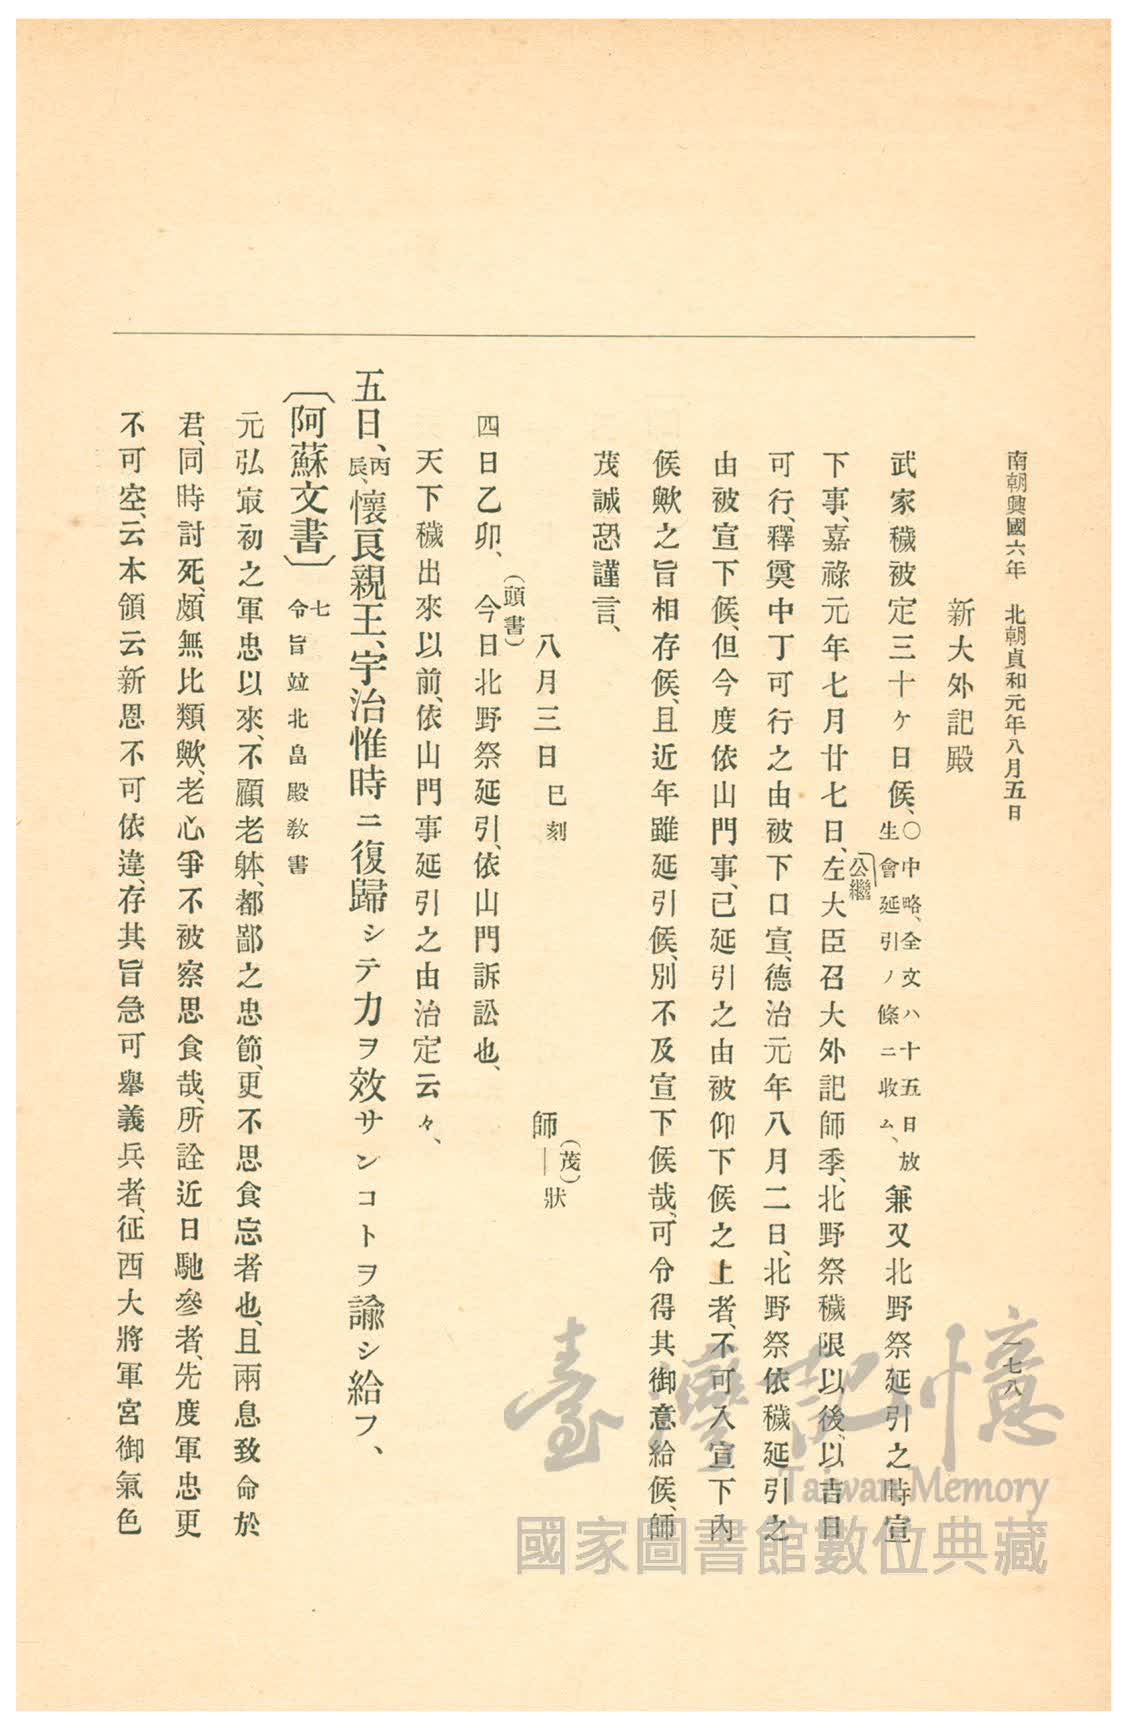 南朝興國六年　北朝貞和元年八月五日
一七八
新大外記殿
武家穢被定三十ケ日候、○中略、全文ハ十五日放生會延引ノ條ニ收ム、兼又北野祭延引之時宣
下事、嘉祿元年七月廿七日、左大臣召大外記師季、北野祭穢限以後、以吉日
(公繼)
可行、釋奠中丁可行之由被下口宣、德治元年八月二日、北野祭依穢延引之
由被宣下候、但今度依山門事、已延引之由被仰下候之上者、不可入宣下內
候歟之旨相存候、且近年雖延引候、別不及宣下候哉、可令得其御意給候、師
茂誠恐謹言、
八月三日巳刻　師—狀
(茂)
(頭書)
四日乙卯、　今日北野祭延引、依山門訴訟也、
天下穢出來以前、依山門事延引之由治定云々、
五日、丙辰、懷良親王、宇治惟時ニ復歸シテ力ヲ效サンコトヲ諭シ給フ、
〔阿蘇文書〕七 令旨竝北畠殿敎書
元弘㝡初之軍忠以來、不顧老躰、都鄙之忠節、更不思食忘者也、且兩息致命於
君、同時討死、頗無比類歟、老心爭不被察思食哉、所詮近日馳參者、先度軍忠更
不可空、云本領云新恩不可依違、存其旨急可擧義兵者、征西大將軍宮御氣色
臺灣記憶
Taiwan Memory
國家圖書館數位典藏